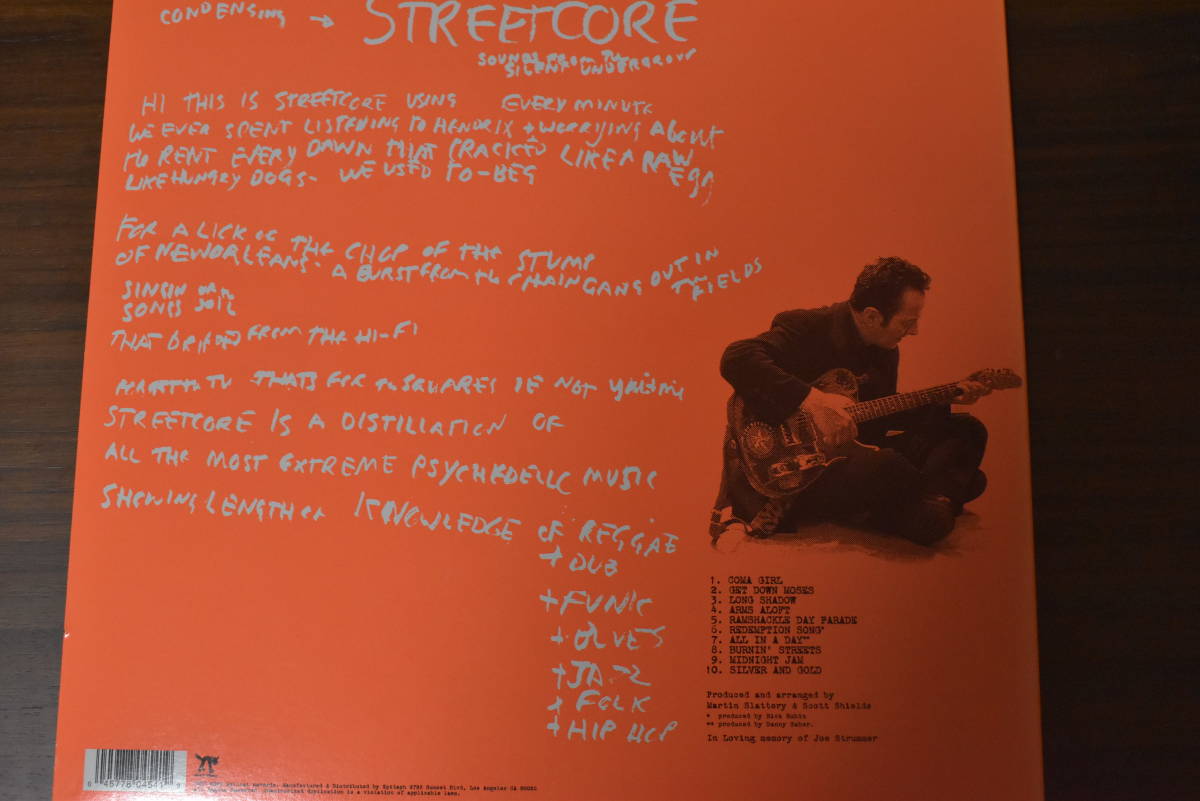 CONDENSING → STREETCORE
SOUNDS FROM THE
SILENT UNDERGROUND
HI THIS IS STREETCORE USING EVERY MINUTE
WE EVER SPENT LISTENING TO HENDRIX + WORRYING ABOUT
RENT EVERY DAWN THAT CRACKED LIKE A RAW
EGG
LIKE HUNGRY DOGS - WE USED TO - BEG
FOR A LICK OF THE CHOP OF THE STUMP
OF NEW ORLEANS - A BURST FROM CHAIN GANG OUT IN
FIELDS
SINGIN
SONGS
THAT DRIPPED FROM THE HI-FI
TV THATS FOR SQUARES IF NOT
STREETCORE IS A DISTILLATION OF
ALL THE MOST EXTREME PSYCHEDELIC MUSIC
SHOWING LENGTH OF KNOWLEDGE OF REGGAE
+ DUB
+ FUNK
+ BLUES
+ JAZZ
+ FOLK
+ HIP HOP
1. COMA GIRL
2. GET DOWN MOSES
3. LONG SHADOW
4. ARMS ALOFT
5. RAMSHACKLE DAY PARADE
6. REDEMPTION SONG*
7. ALL IN A DAY**
8. BURNIN' STREETS
9. MIDNIGHT JAM
10. SILVER AND GOLD
Produced and arranged by
Martin Slattery & Scott Shields
* produced by Rick Rubin
** produced by Danny Saber.
In Loving memory of Joe Strummer
Manufactured & Distributed by Epitaph 2798 Sunset Blvd, Los Angeles CA 90026
application is a violation of applicable laws.